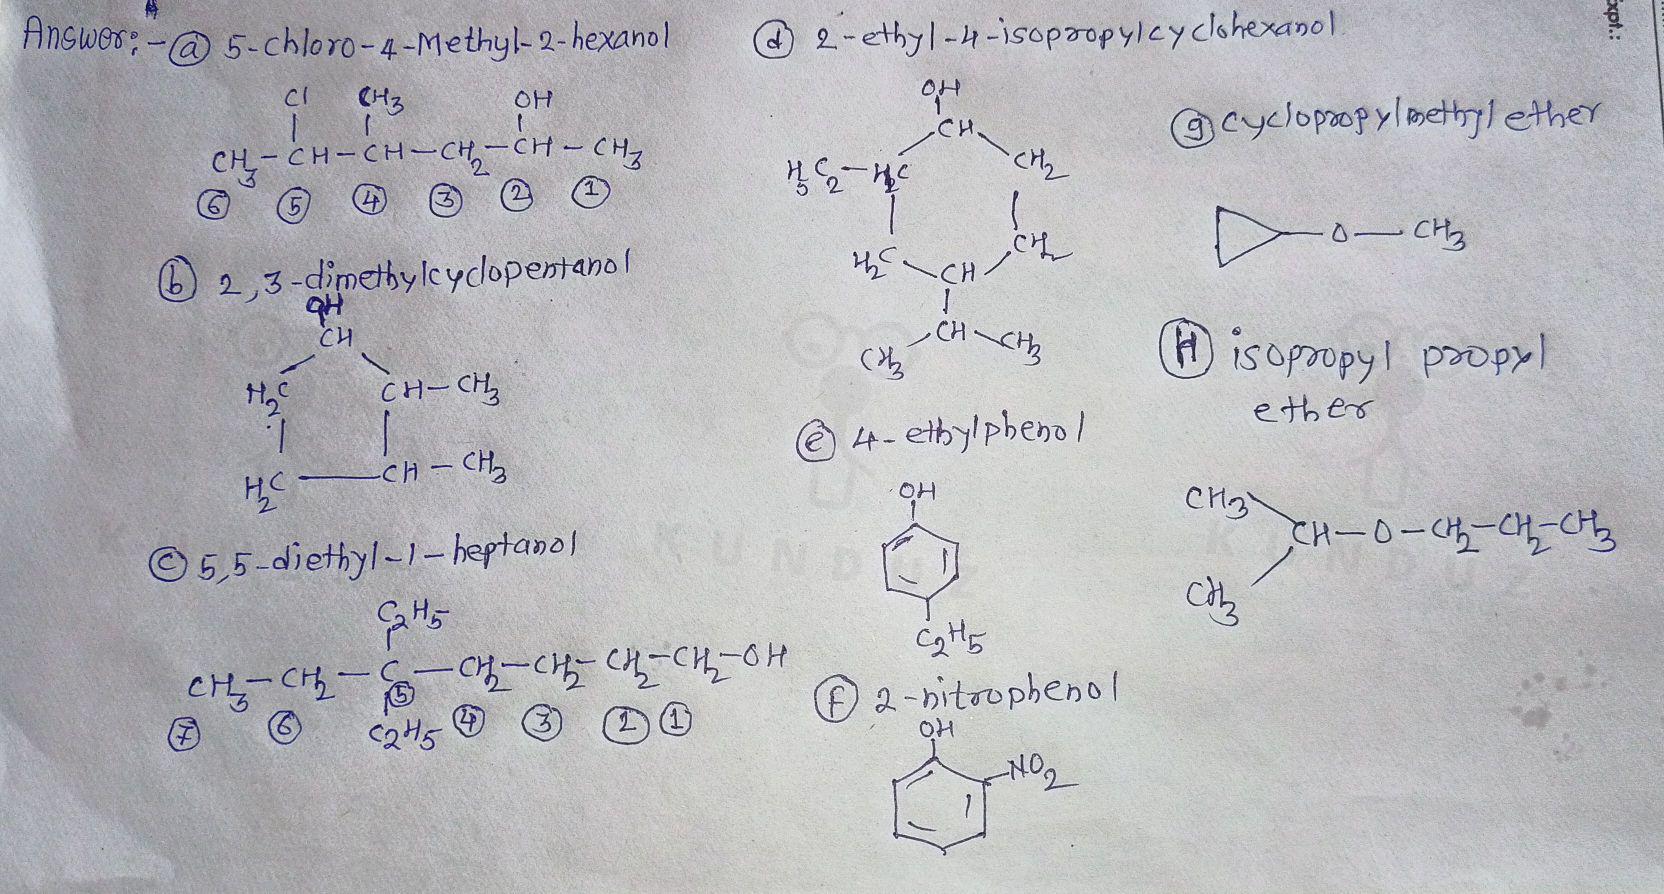 Answer:- ⓐ 5-chloro-4-Methyl-2-hexanol
Cl CH3 OH
CH3-CH-CH-CH2-CH-CH3
⑥ ⑤ ④ ③ ② ①
ⓑ 2,3-dimethylcyclopentanol
OH
CH
H2C CH-CH3
H2C CH-CH3
ⓒ 5,5-diethyl-1-heptanol
C2H5
CH3-CH2-C-CH2-CH2-CH2-CH2-OH
⑤
⑦ ⑥ C2H5 ④ ③ ② ①
ⓓ 2-ethyl-4-isopropylcyclohexanol.
OH
CH
CH2
H2C CH CH2
CH
CH3 CH3
ⓔ 4-ethylphenol
OH
C2H5
ⓕ 2-nitrophenol
OH
NO2
ⓖ cyclopropylmethyl ether
O-CH3
Ⓗ isopropyl propyl
ether
CH3
CH-O-CH2-CH2-CH3
CH3
KUNDUZ